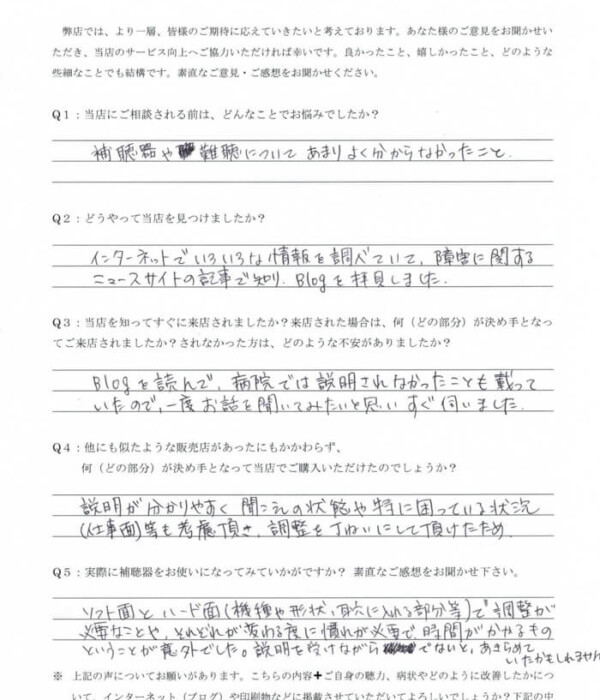 弊店では、より一層、皆様のご期待に応えていきたいと考えております。あなた様のご意見をお聞かせい
ただき、当店のサービス向上へご協力いただければ幸いです。良かったこと、嬉しかったこと、どのような
些細なことでも結構です。素直なご意見・ご感想をお聞かせください。
Q1：当店にご相談される前は、どんなことでお悩みでしたか？
補聴器や難聴について あまりよく分からなかったこと.
Q2：どうやって当店を見つけましたか？
インターネットでいろいろな情報を調べていて、障害に関する
ニュースサイトの記事で知り、Blogを拝見しました.
Q3：当店を知ってすぐに来店されましたか？来店された場合は、何（どの部分）が決め手となっ
てご来店されましたか？されなかった方は、どのような不安がありましたか？
Blogを読んで、病院では説明されなかったことも載って
いたので、一度お話を聞いてみたいと思いすぐ伺いました.
Q4：他にも似たような販売店があったにもかかわらず、
何（どの部分）が決め手となって当店でご購入いただけたのでしょうか？
説明が分かりやすく 聞こえの状態や特に困っている状況
(仕事面)等も考慮頂き、調整を丁ねいにして頂けたため
Q5：実際に補聴器をお使いになってみていかがですか？ 素直なご感想をお聞かせ下さい。
ソフト面とハード面(機種や形状、耳穴に入れる部分等)で調整が
必要なことや、それぞれが変わる度に慣れが必要で、時間がかかるもの
ということが意外でした。説明を受けながらでないと、あきらめて
いたかもしれません
※ 上記の声についてお願いがあります。こちらの内容＋ご自身の聴力、病状やどのように改善したかにつ
いて、インターネット（ブログ）や印刷物などに掲載させていただいてよろしいでしょうか？下記の中